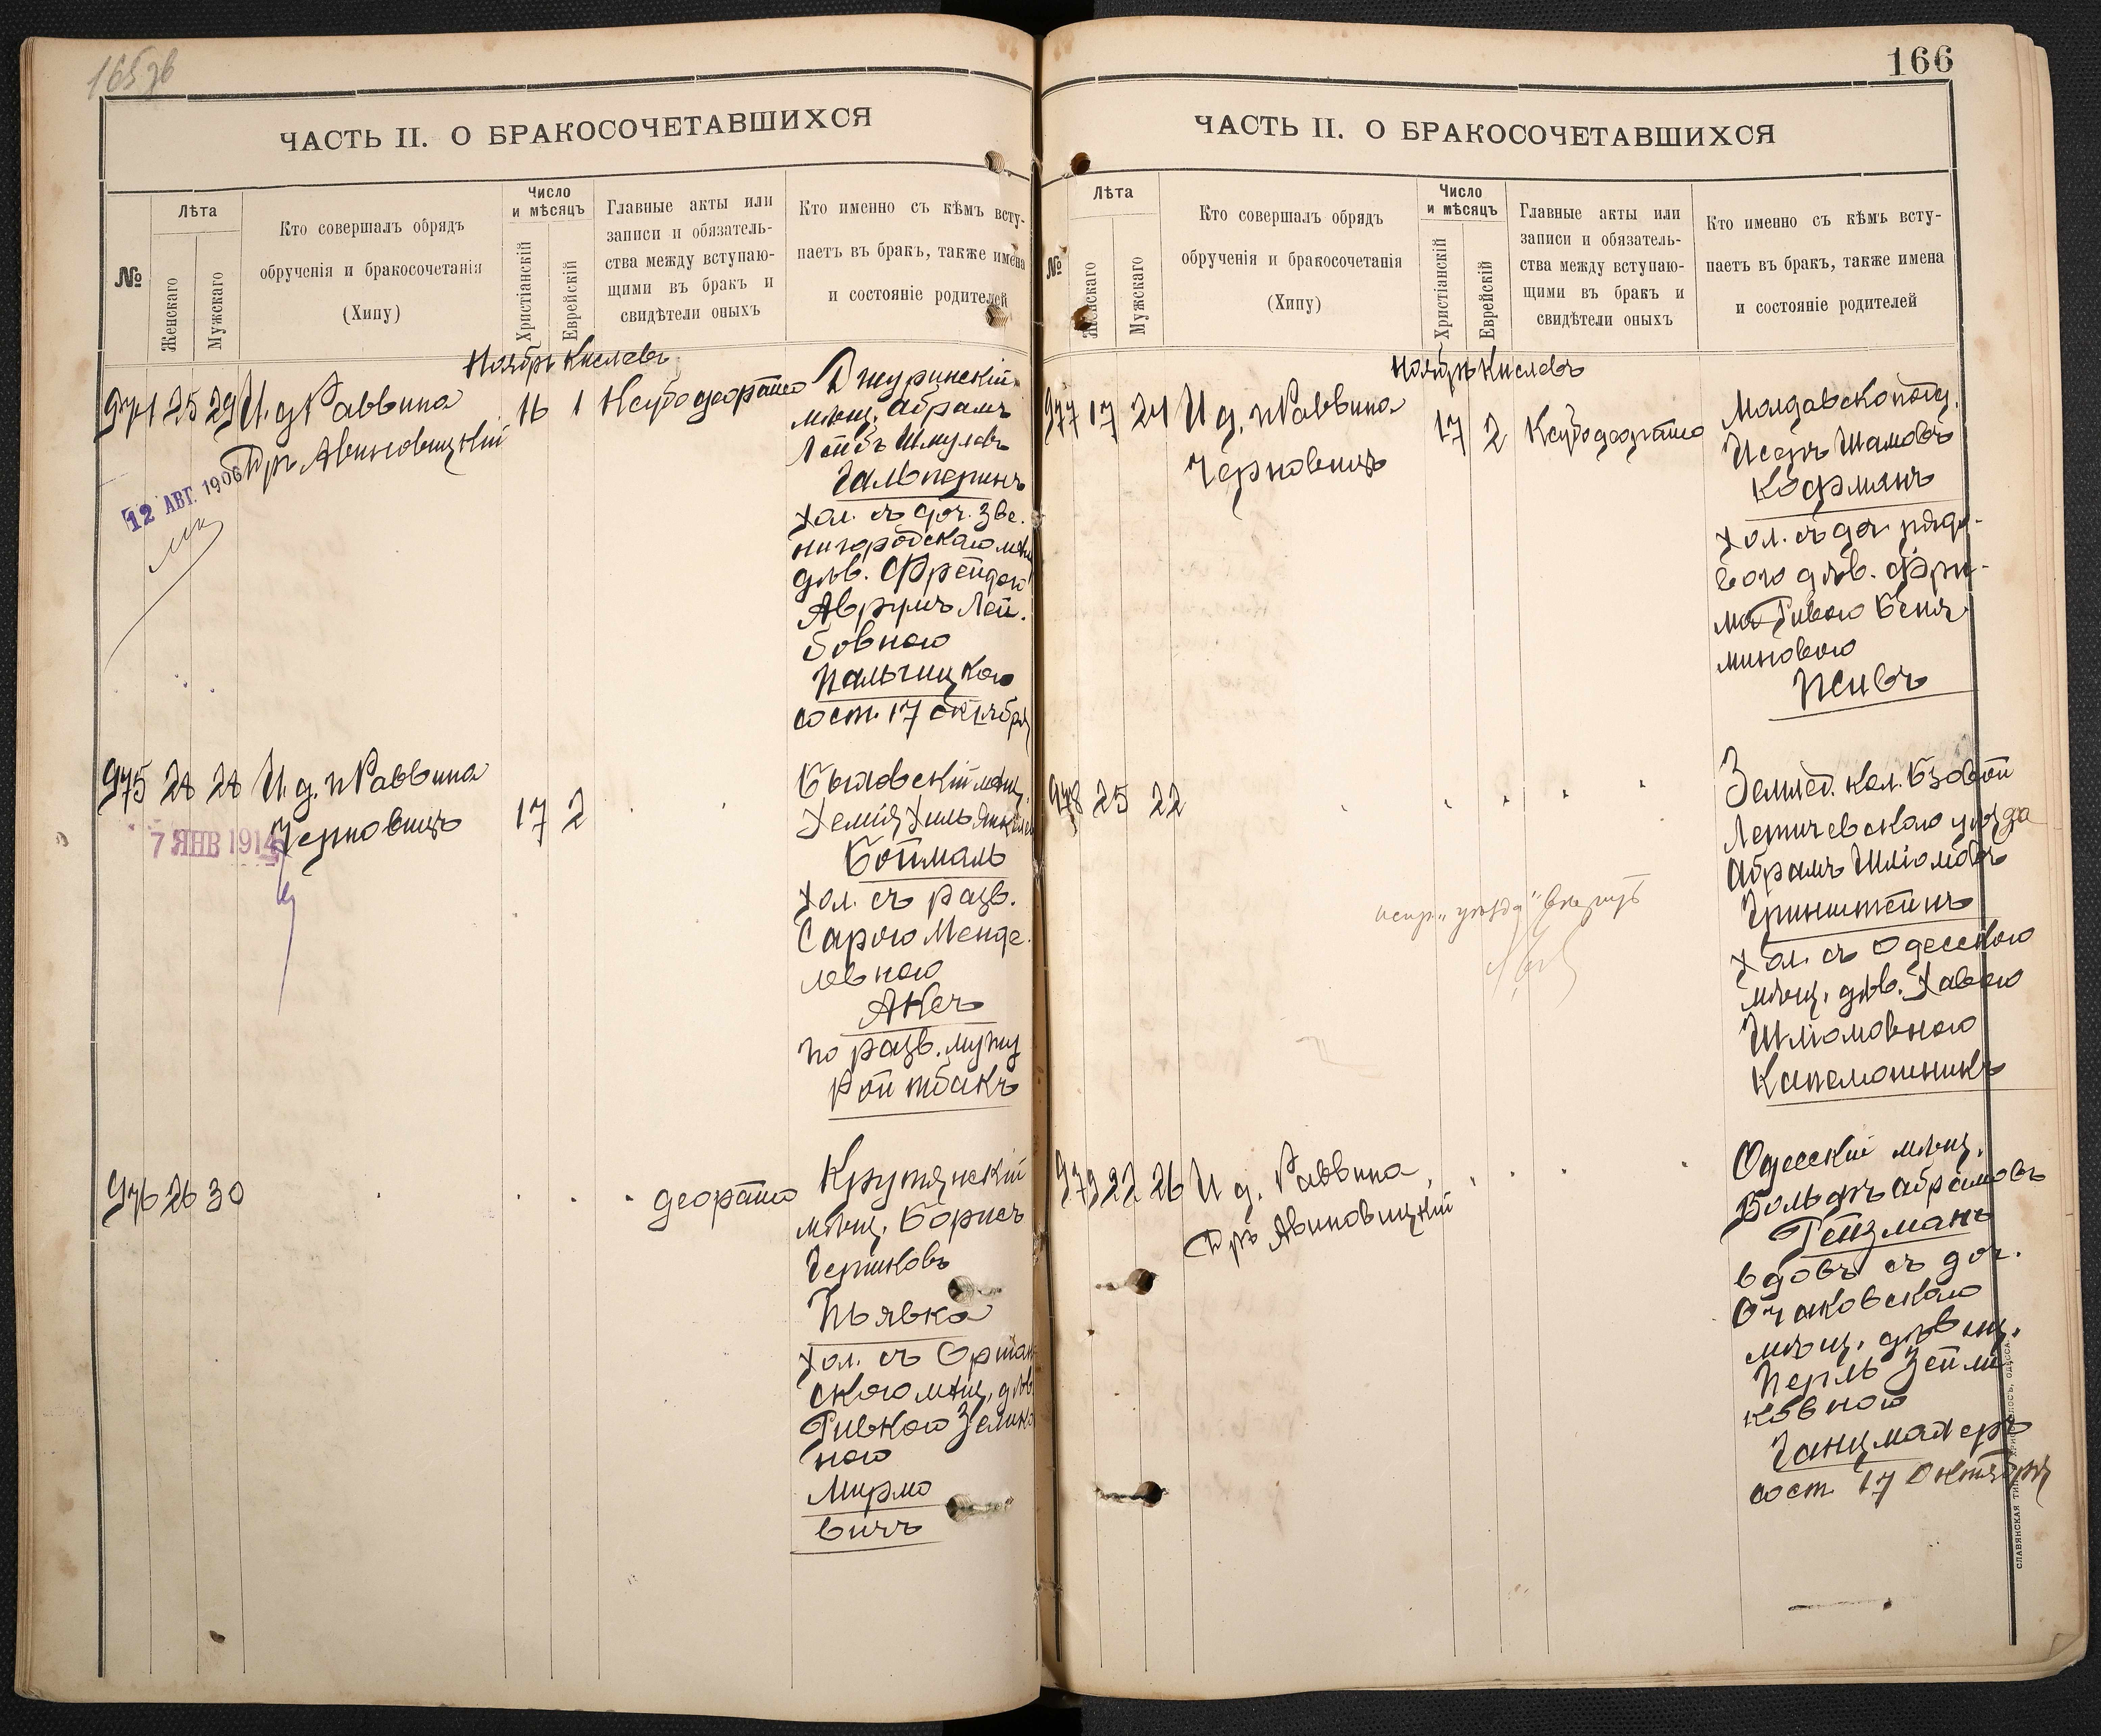 166
ЧАСТЬ II. О БРАКОСОЧЕТАВШИХСЯ
№
Лѣта
Женскаго
Мужскаго
Кто совершалъ обрядъ
обрученія и бракосочетанія
(Хипу)
Число
и мѣсяцъ
Христіанскій
Еврейскій
Главные акты или
записи и обязатель-
ства между вступаю-
щими въ бракъ и
свидѣтели оныхъ
Кто именно съ кѣмъ всту-
паетъ въ бракъ, также имена
и состояніе родителей
Ноябрь Кислевъ
974 25 29 И. д. Раввина
Дръ Авиновицкій
12 АВГ. 1906
16 1
Джуринскій
мѣщ. Абрамъ
Лейбъ Шмулевъ
Гальперинъ
хол. съ доч. Зве.
нигородскаго мѣщ
дѣв. Фрейдою
Аврумъ Лей.
бовною
Пальчицкою
сост. 17 октября
975 28 28 И. д. Раввина
Черновицъ
7 ЯНВ 1914
17 2
мѣщ.
Хемія Хиль
Бойmаль
хол. съ разв.
Сарою Менде.
левною
Аксъ
по разв. мужу
Ройтбакъ
976 26 30
деорашо
Крутянскій
мѣщ. Борисъ
Гершковъ
Пьявка
хол. съ Оршан
скою мѣщ. дѣв
Ривкою Зелико
ною
Мирмо
вичъ
ЧАСТЬ II. О БРАКОСОЧЕТАВШИХСЯ
№
Лѣта
Женскаго
Мужскаго
Кто совершалъ обрядъ
обрученія и бракосочетанія
(Хипу)
Число
и мѣсяцъ
Христіанскій
Еврейскій
Главные акты или
записи и обязатель-
ства между вступаю-
щими въ бракъ и
свидѣтели оныхъ
Кто именно съ кѣмъ всту-
паетъ въ бракъ, также имена
и состояніе родителей
Ноябрь Кислевъ
977 17 24 И. д. Раввина
Черновицъ
17 2
Исеръ Шамовъ
Кофманъ
хол. съ доч рядо-
вого дѣв. Фри-
ма Ривою Беня
миновою
Псивъ
978 25 22
Землед. кол. Бзовой
Летичевскаго уѣзда
Абрамъ Шліомовъ
Гринштейнъ
хол. съ Одесскою
мѣщ. дѣв. Хавою
Шліомовною
Капелюшникъ
979 22 26 И д. Раввина
Дръ Авиновицкій
Одесскій мѣщ.
Вольфъ Абрамовъ
Гейзманъ
вдовъ съ доч.
Очаковскаго
мѣщ. дѣвиц.
Перль Зейли
ковною
Ганцмахеръ
сост. 17 Октября